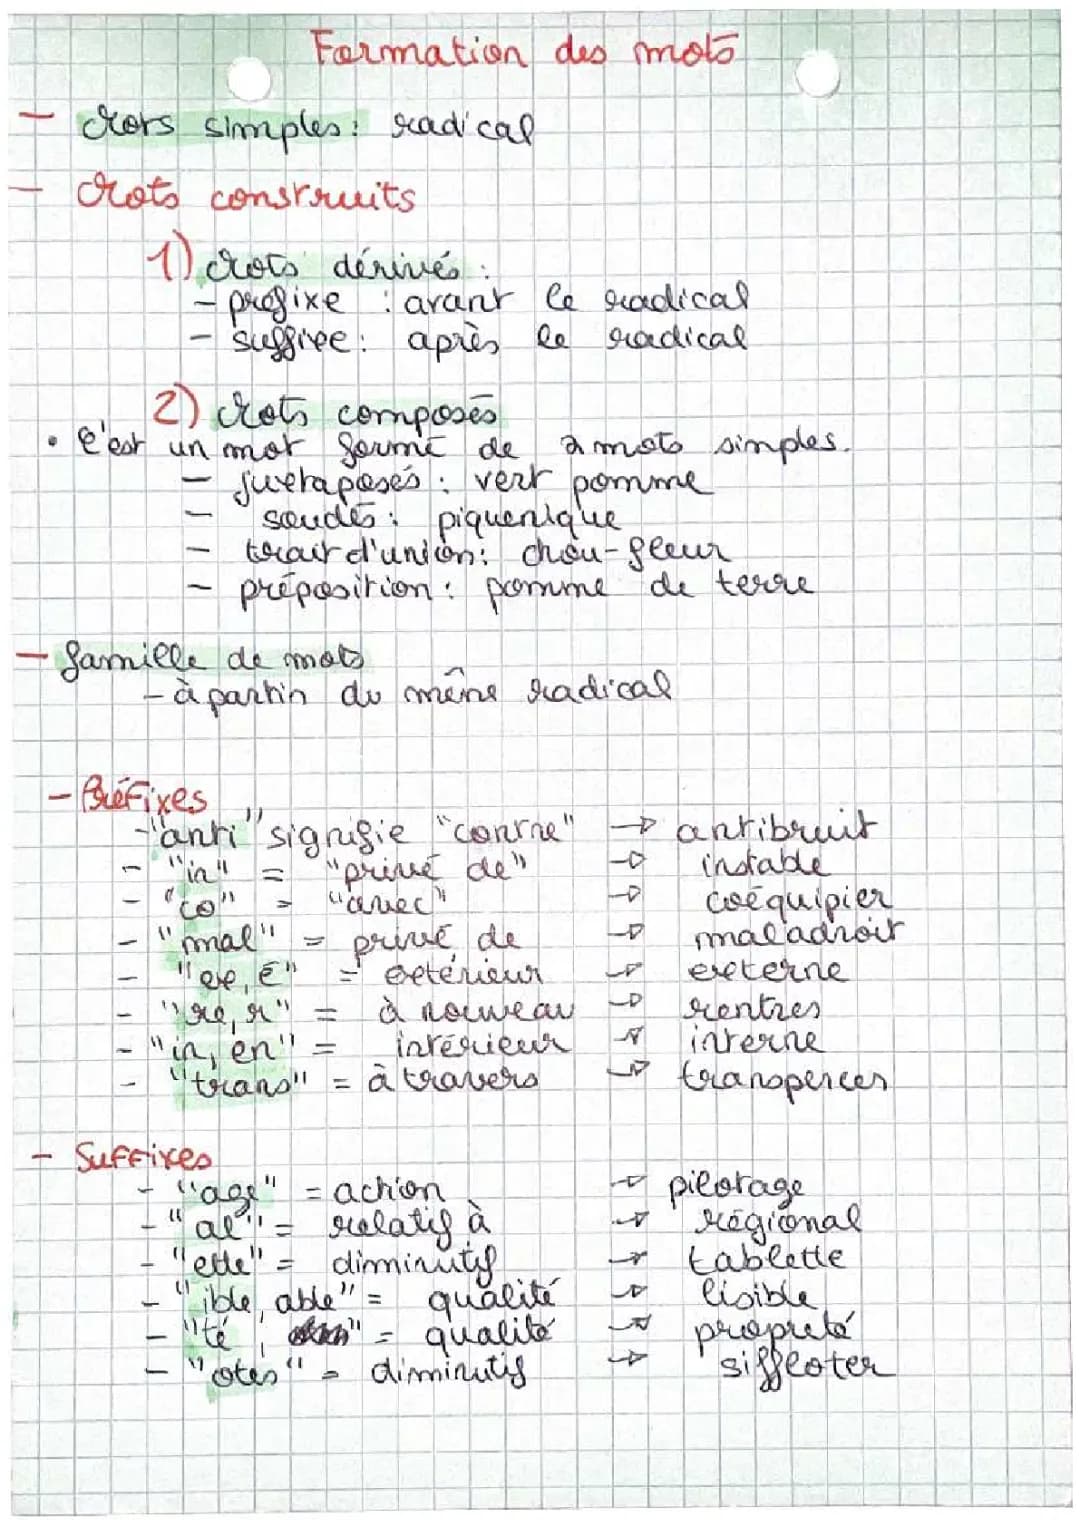 Formation des mots
- Mots simples: radical
- Mots construits
1) Mots dérivés :
- préfixe : avant le radical
- suffixe : après le radical
2) Mots composés
• C'est un mot formé de 2 mots simples.
- juxtaposés : vert pomme
- soudés : piquenique
- trait d'union : chou-fleur
- préposition : pomme de terre
- famille de mots
- à partir du même radical
- Préfixes
- "anti" signifie "contre" → antibruit
- "in" = "privé de" → instable
- "co" = "avec" → coéquipier
- "mal" = privé de → maladroit
- "ex, é" = extérieur → externe
- "re, r" = à nouveau → rentrer
- "in, en" = intérieur → interne
- "trans" = à travers → transpercer
- Suffixes
- "age" = action → pilotage
- "al" = relatif à → régional
- "ette" = diminutif → tablette
- "ible, able" = qualité → lisible
- "té, " = qualité → propreté
- "oter" = diminutif → siffloter